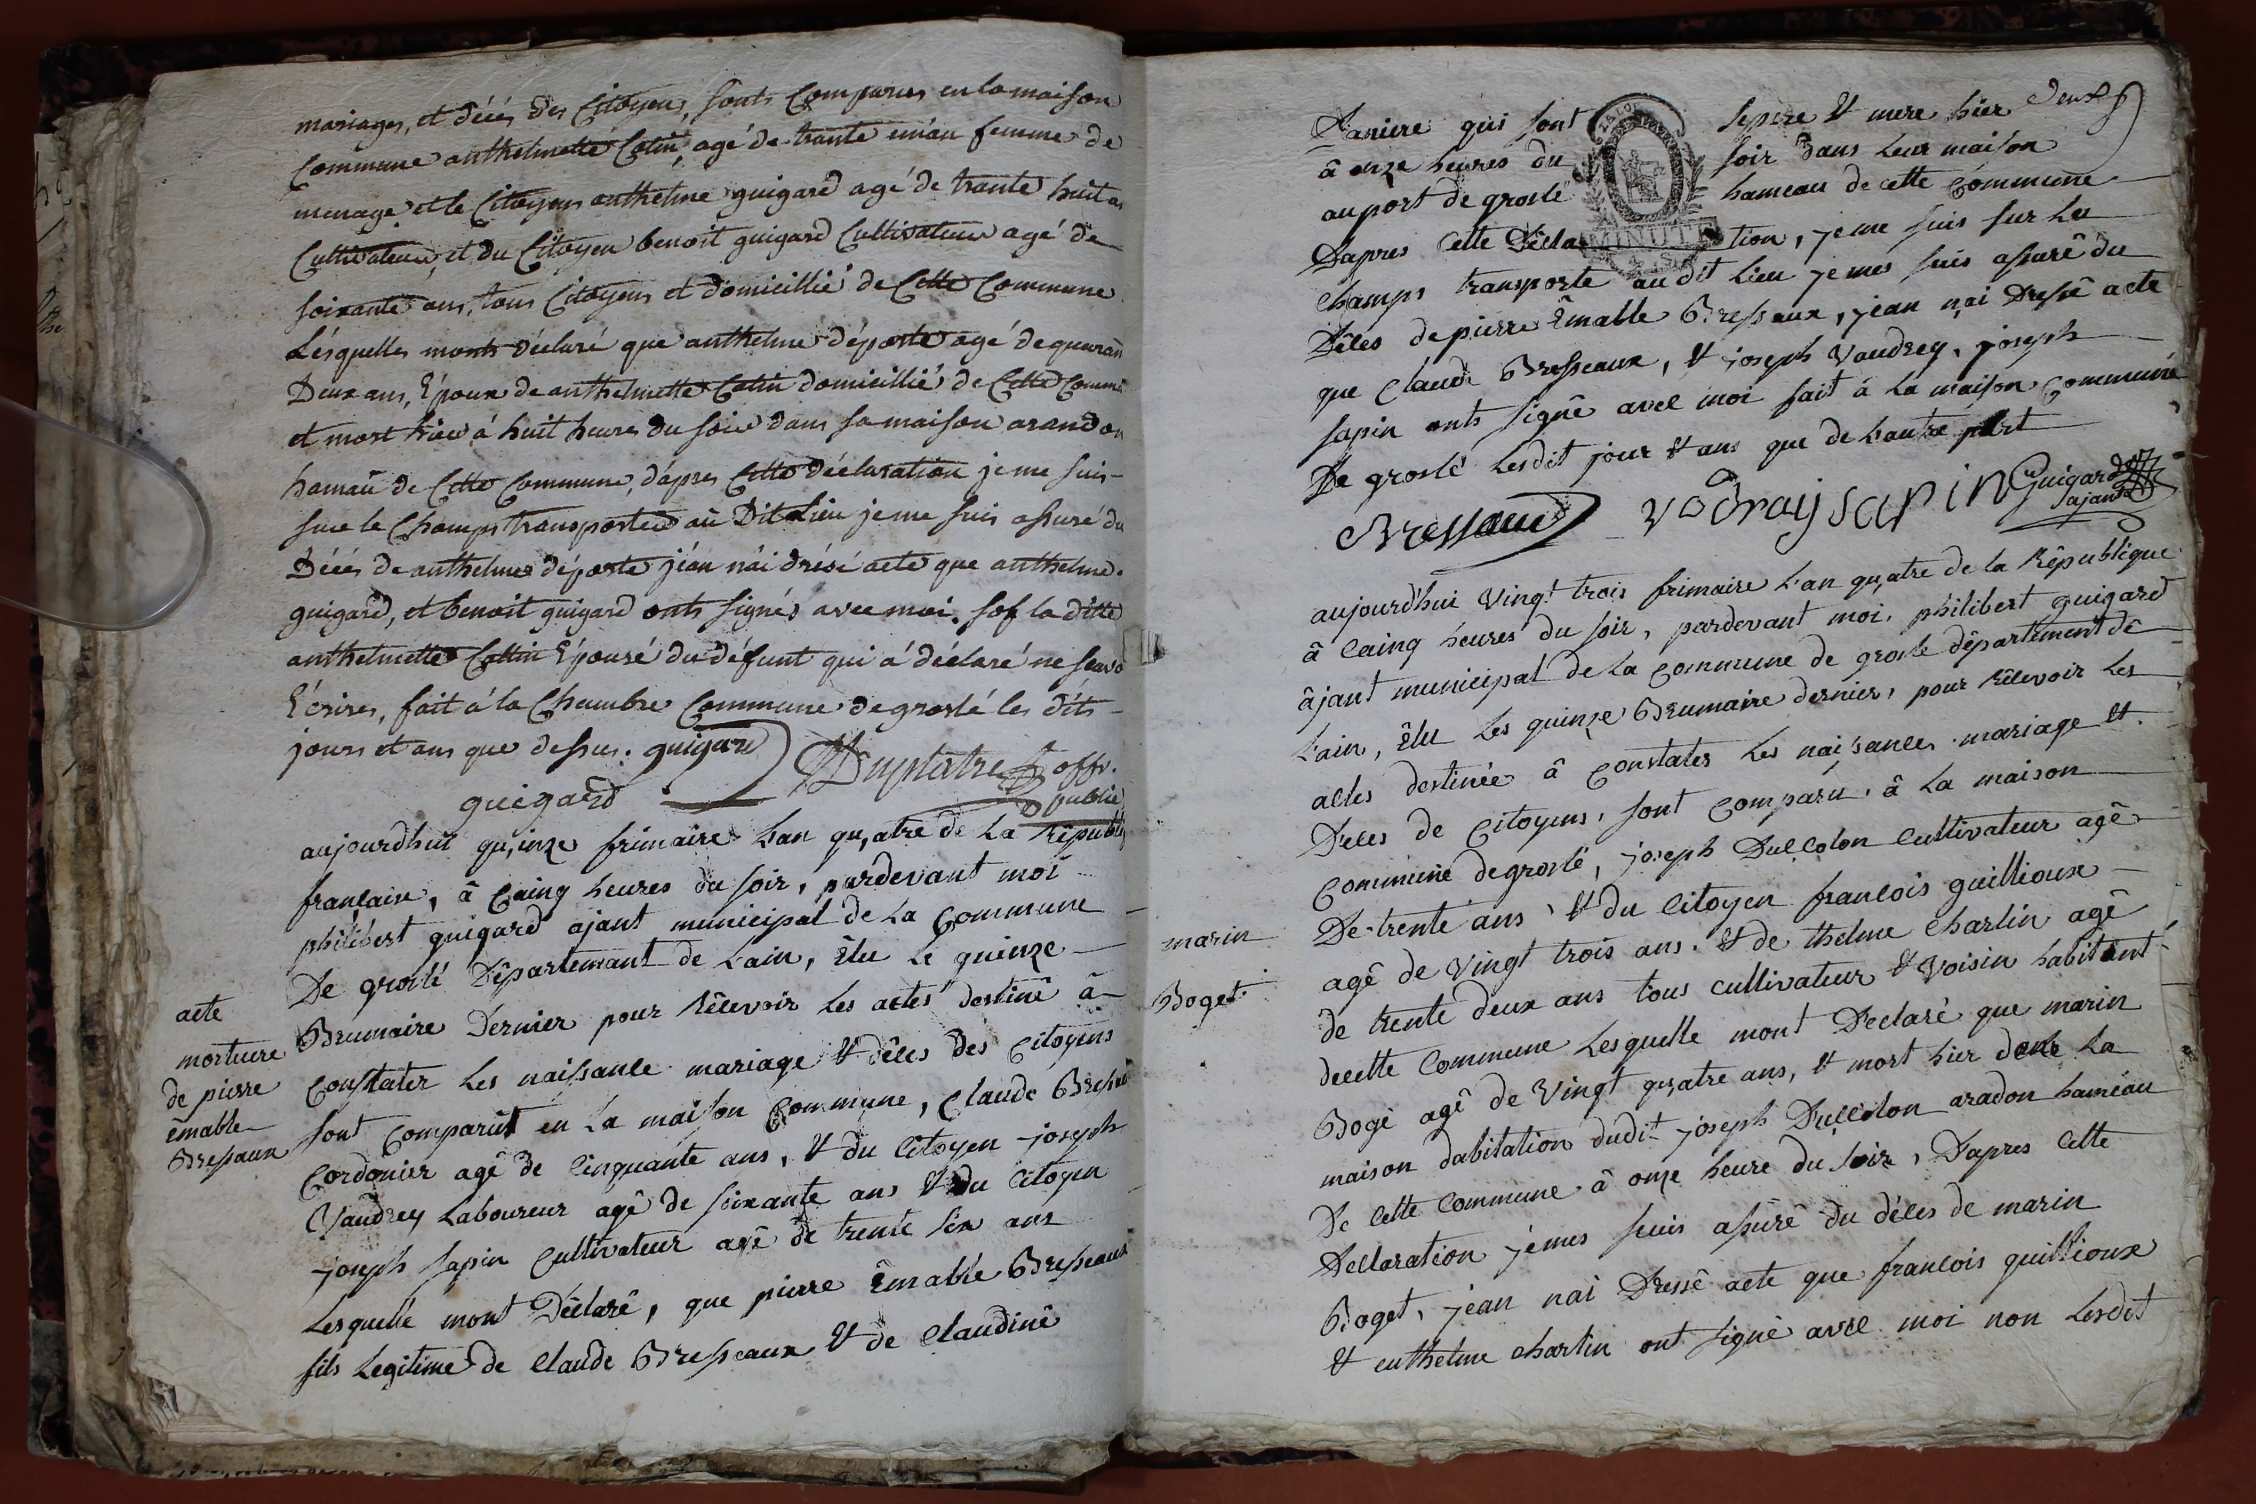 mariages, et décés des Citoyens, sonts Comparus en la maison
Commune anthelmette Colin, agé de trante un an femme de
menage et le Citoyen anthelme guigard agé de trante huit ans
Cultivateur, et du Citoyen benoit guigard Cultivateur agé de
soixante ans, tous Citoyens et domicillié de Cette Commune
Lésquelles monts déclaré que anthelme déporte agé de quarante
Deux ans, Époux de anthelmette Colin domicillié de Cette Commune
et mort hier á huit heures du soir dans sa maison arandon
hamaù de Cette Commune, dápres Cette déclaration je me suis
sur le Champs transporter aù Dit Lieu je me suis assuré du
Décés de anthelme déporte jéan nâi drésé acte que anthelme
guigard, et benoit guigard onts signés avec moi. sof la ditte
anthelmette Collin Épousé du défunt qui á déclaré ne savo
Écrires, fait á la Chambre Commune de groslé les dits
jours et ans que dessus. guigard
Duplatre offr.
public
guegard
aujourdhui qu,inze frimaire Lan qu,atre de La Républi
françaire, â Cainq heures du soir, pardevant moi
philibert guigard ajant municipal de La Commune
De groslé Département de Lain, Élu Le quinze
Brumaire Dernier pour Rêcevoir Les actes destinê â
Constater Les naissance mariage & dêces dés Citoyens
sont Comparût en La maison Commune, Claude Bressau
Cordonier agê de Cinquante ans, & du Citoyen joseph
Vaudrey Laboureur agê de soixante ans & du Citoyen
joseph sapin Cultivateur agê de trente six ans
Lesquelle mont Déclarê, que pierre Êmable Bresseaux
fils Legitime de Claude Bresseaux & de Claudinê
acte
mortuere
de pierre
êmable
Bressaux
deux
Janiere qui sont sepere & mere hier
â onze heures du soir dans Leur maison
au port de groslé hameau de cette Commune
Dapres Cette Déclaration, jeme suis sur Les
Champs transporte audit Lieu jemes suis assurê du
Dêces de pierre Êmable Bresseaux, jean nai Dressê acte
que Claude Bresseaux, & joseph Vaudrey, joseph
sapin onts signê avec moi fait á La maison Commune
De groslé Lesdit jour & ans que de Lautre part
MINUTE
Bressaud vodray sapin Guigard
ajant
aujourd'hui Vingt trois frimaire Lan qu,atre de la Rêpublique
â Cainq heures du soir, pardevant moi, philibert guigard
âjant municipal de La Commune de grosle département dê
Lain, Êlu Les quinze Brumaire dernier, pour Rêcevoir Les
actes destinée â Constater Les naissances mariage &
Deces de Citoyens, sont Comparu, â La maison
Commune de groslé, joseph Duccolon Cultivateur agê
De trente ans & du Citoyen francois guillioux
agê de Vingt trois ans. & de thelme Charlin agê
de trente deux ans tous cultivateur & Voisin habitant
decette Commune Lesquelle mont Declarê que marin
Bogé agê de Vingt qu,atre ans, & mort hier dans La
maison dabitation dudit joseph Duccolon aradon haméau
De Cette Commune â onze heure du soir, Dapres Cette
Declaration jémes suis assurê du déces de marin
Boget, jean nai Dressê acte que francois guillioux
& enthelme Charlin ont signé avec moi non Lesdit
marin
Boget